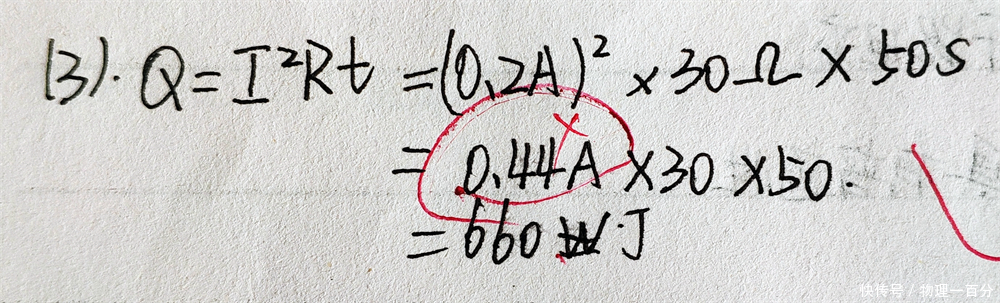 (3). Q=I²Rt =(0.2A)² × 30Ω × 50S
= 0.44A ×30 ×50.
= 660 W·J
快传号 / 物理一百分